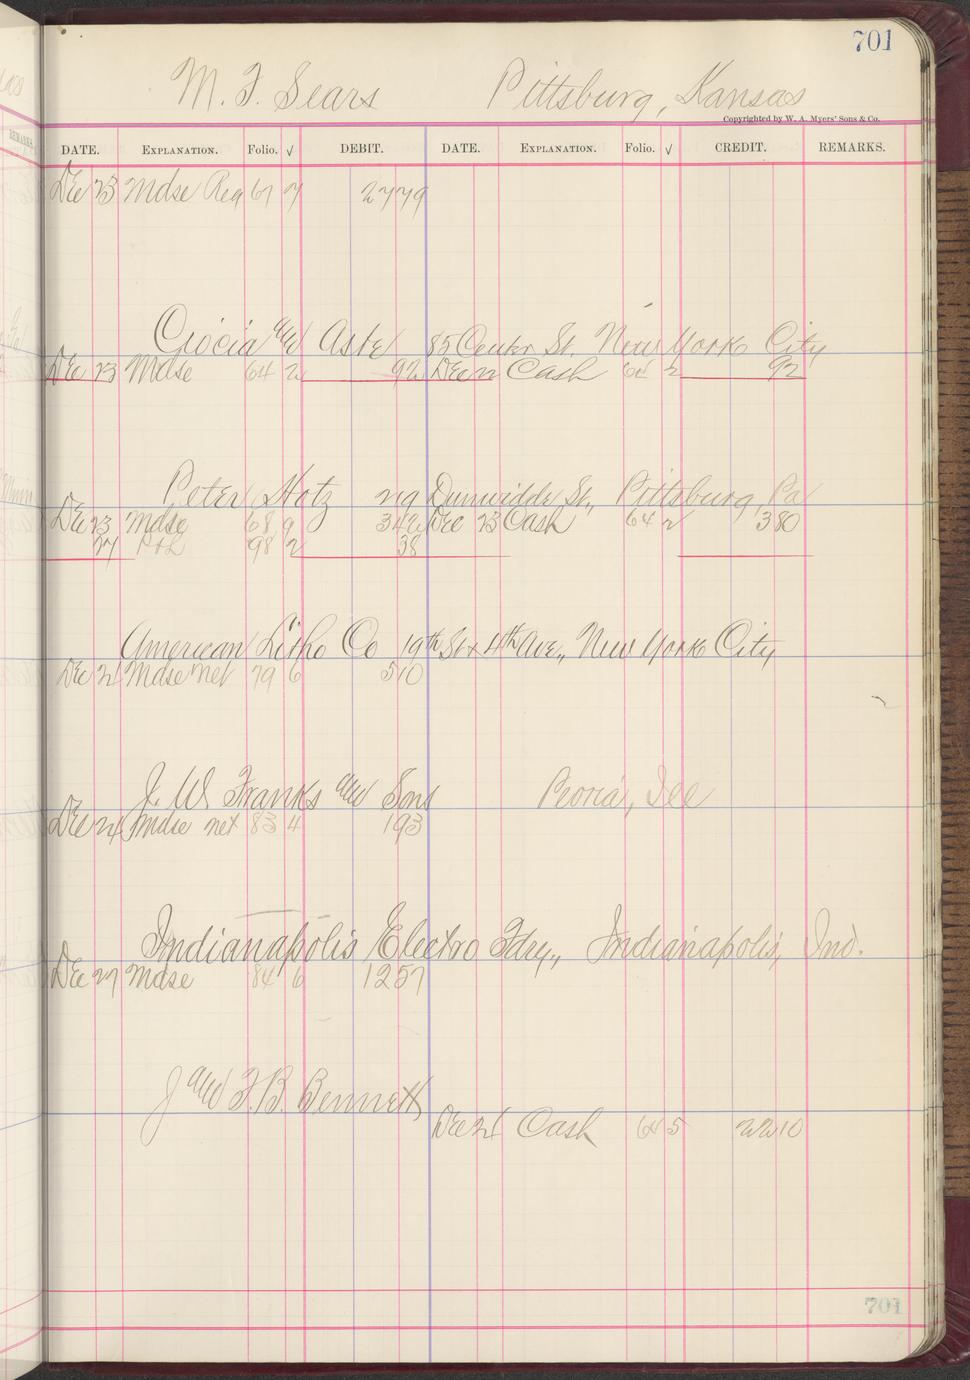 701
M. F. Sears Pittsburg, Kansas
Copyrighted by W. A. Myers' Sons & Co.
DATE. EXPLANATION. Folio. √ DEBIT. DATE. EXPLANATION. Folio. √ CREDIT. REMARKS.
Dec 23 Mdse Reg 67 7 27 79
Ciocia and Aste 85 Center St. New York City
Dec 23 Mdse 64 2 92 Dec Cash 64 2 92
Peter Hotz Dunwidde St., Pittsburg, Pa
Dec 23 Mdse 68 9 3 42 Dec 23 Cash 64 2 3 80
27 P+L 98 2 38
American Litho Co 19th St & 4th Ave., New York City
Dec 21 Mdse net 79 6 5 10
J. W. Franks and Sons Peoria, Ill
Dec 24 Mdse net 83 4 1 93
Indianapolis Electro Fdry., Indianapolis, Ind.
Dec 27 Mdse 84 6 12 57
J and F. B. Bennett
Dec 21 Cash 64 5 22 10
701